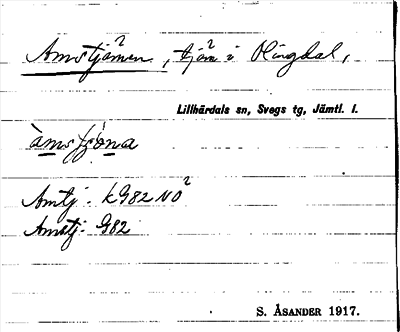 Amstjärnen, tjä² i Olingdal,
Lillhärdals sn, Svegs tg, Jämtl. l.
Amtj. k G82 NO²
Amstj. G82
S. ÅSANDER 1917.